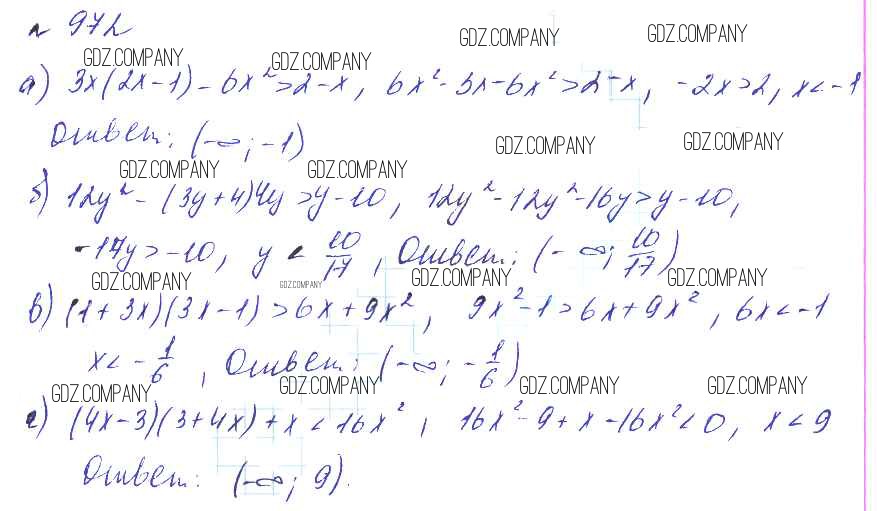 № 972
GDZ.COMPANY GDZ.COMPANY GDZ.COMPANY GDZ.COMPANY
а) 3x(2x-1)-6x²>2-x, 6x²-3x-6x²>2-x, -2x>2, x<-1
Ответ: (-∞; -1)
GDZ.COMPANY GDZ.COMPANY GDZ.COMPANY GDZ.COMPANY
б) 12y²-(3y+4)4y>y-10, 12y²-12y²-16y>y-10,
-17y>-10, y<10/17, Ответ: (-∞; 10/17)
GDZ.COMPANY GDZ.COMPANY GDZ.COMPANY GDZ.COMPANY
в) (1+3x)(3x-1)>6x+9x², 9x²-1>6x+9x², 6x<-1
x<-1/6, Ответ: (-∞; -1/6)
GDZ.COMPANY GDZ.COMPANY GDZ.COMPANY GDZ.COMPANY
г) (4x-3)(3+4x)+x<16x², 16x²-9+x-16x²<0, x<9
Ответ: (-∞; 9).